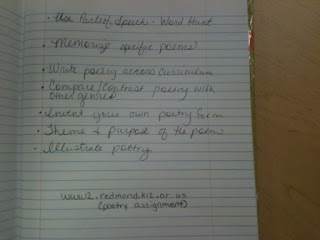 · Use Parts of Speech - Word Hunt
· Memorize specific poems
· Write poetry across curriculum
· Compare/Contrast poetry with
other genres
· Invent your own poetry form
· Theme & purpose of the poem
- Illustrate poetry
www2.redmond.k12.or.us
(poetry assignment)